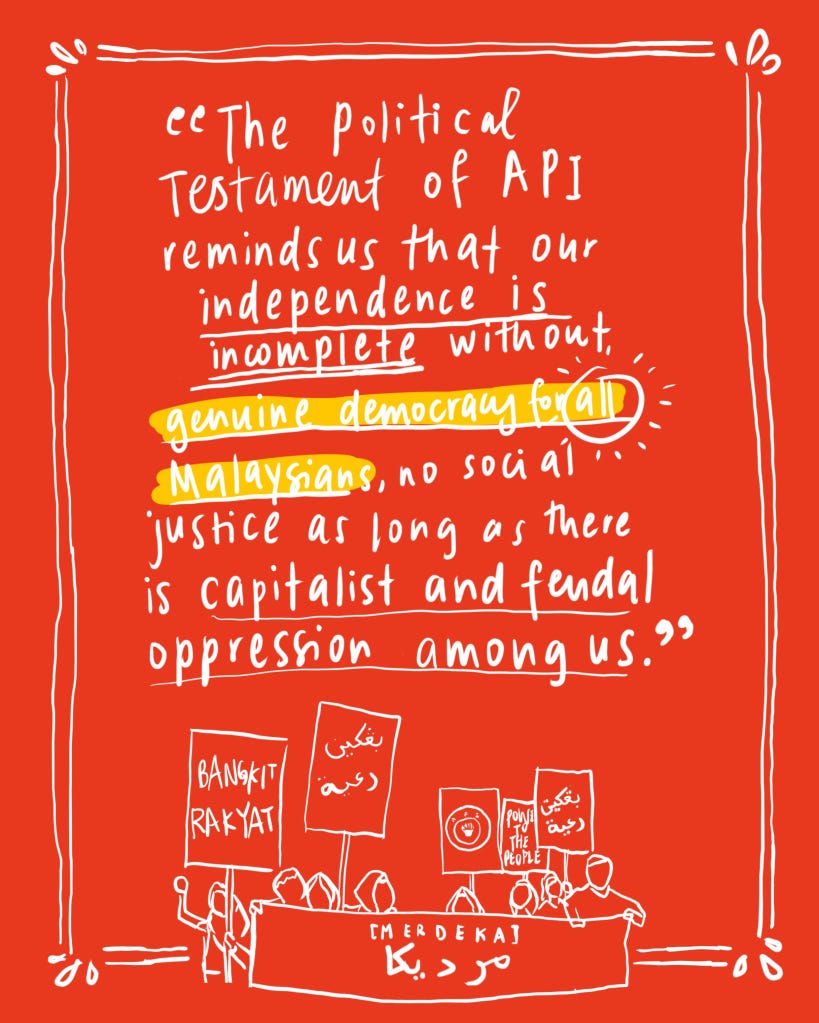 “The political
Testament of API
reminds us that our
independence is
incomplete without
genuine democracy for all
Malaysians, no social
justice as long as there
is capitalist and feudal
oppression among us.”
BANGKIT
RAKYAT
بڠکيت
رعية
POWER
TO
THE
PEOPLE
بڠکيت
رعية
[MERDEKA]
مرديکا